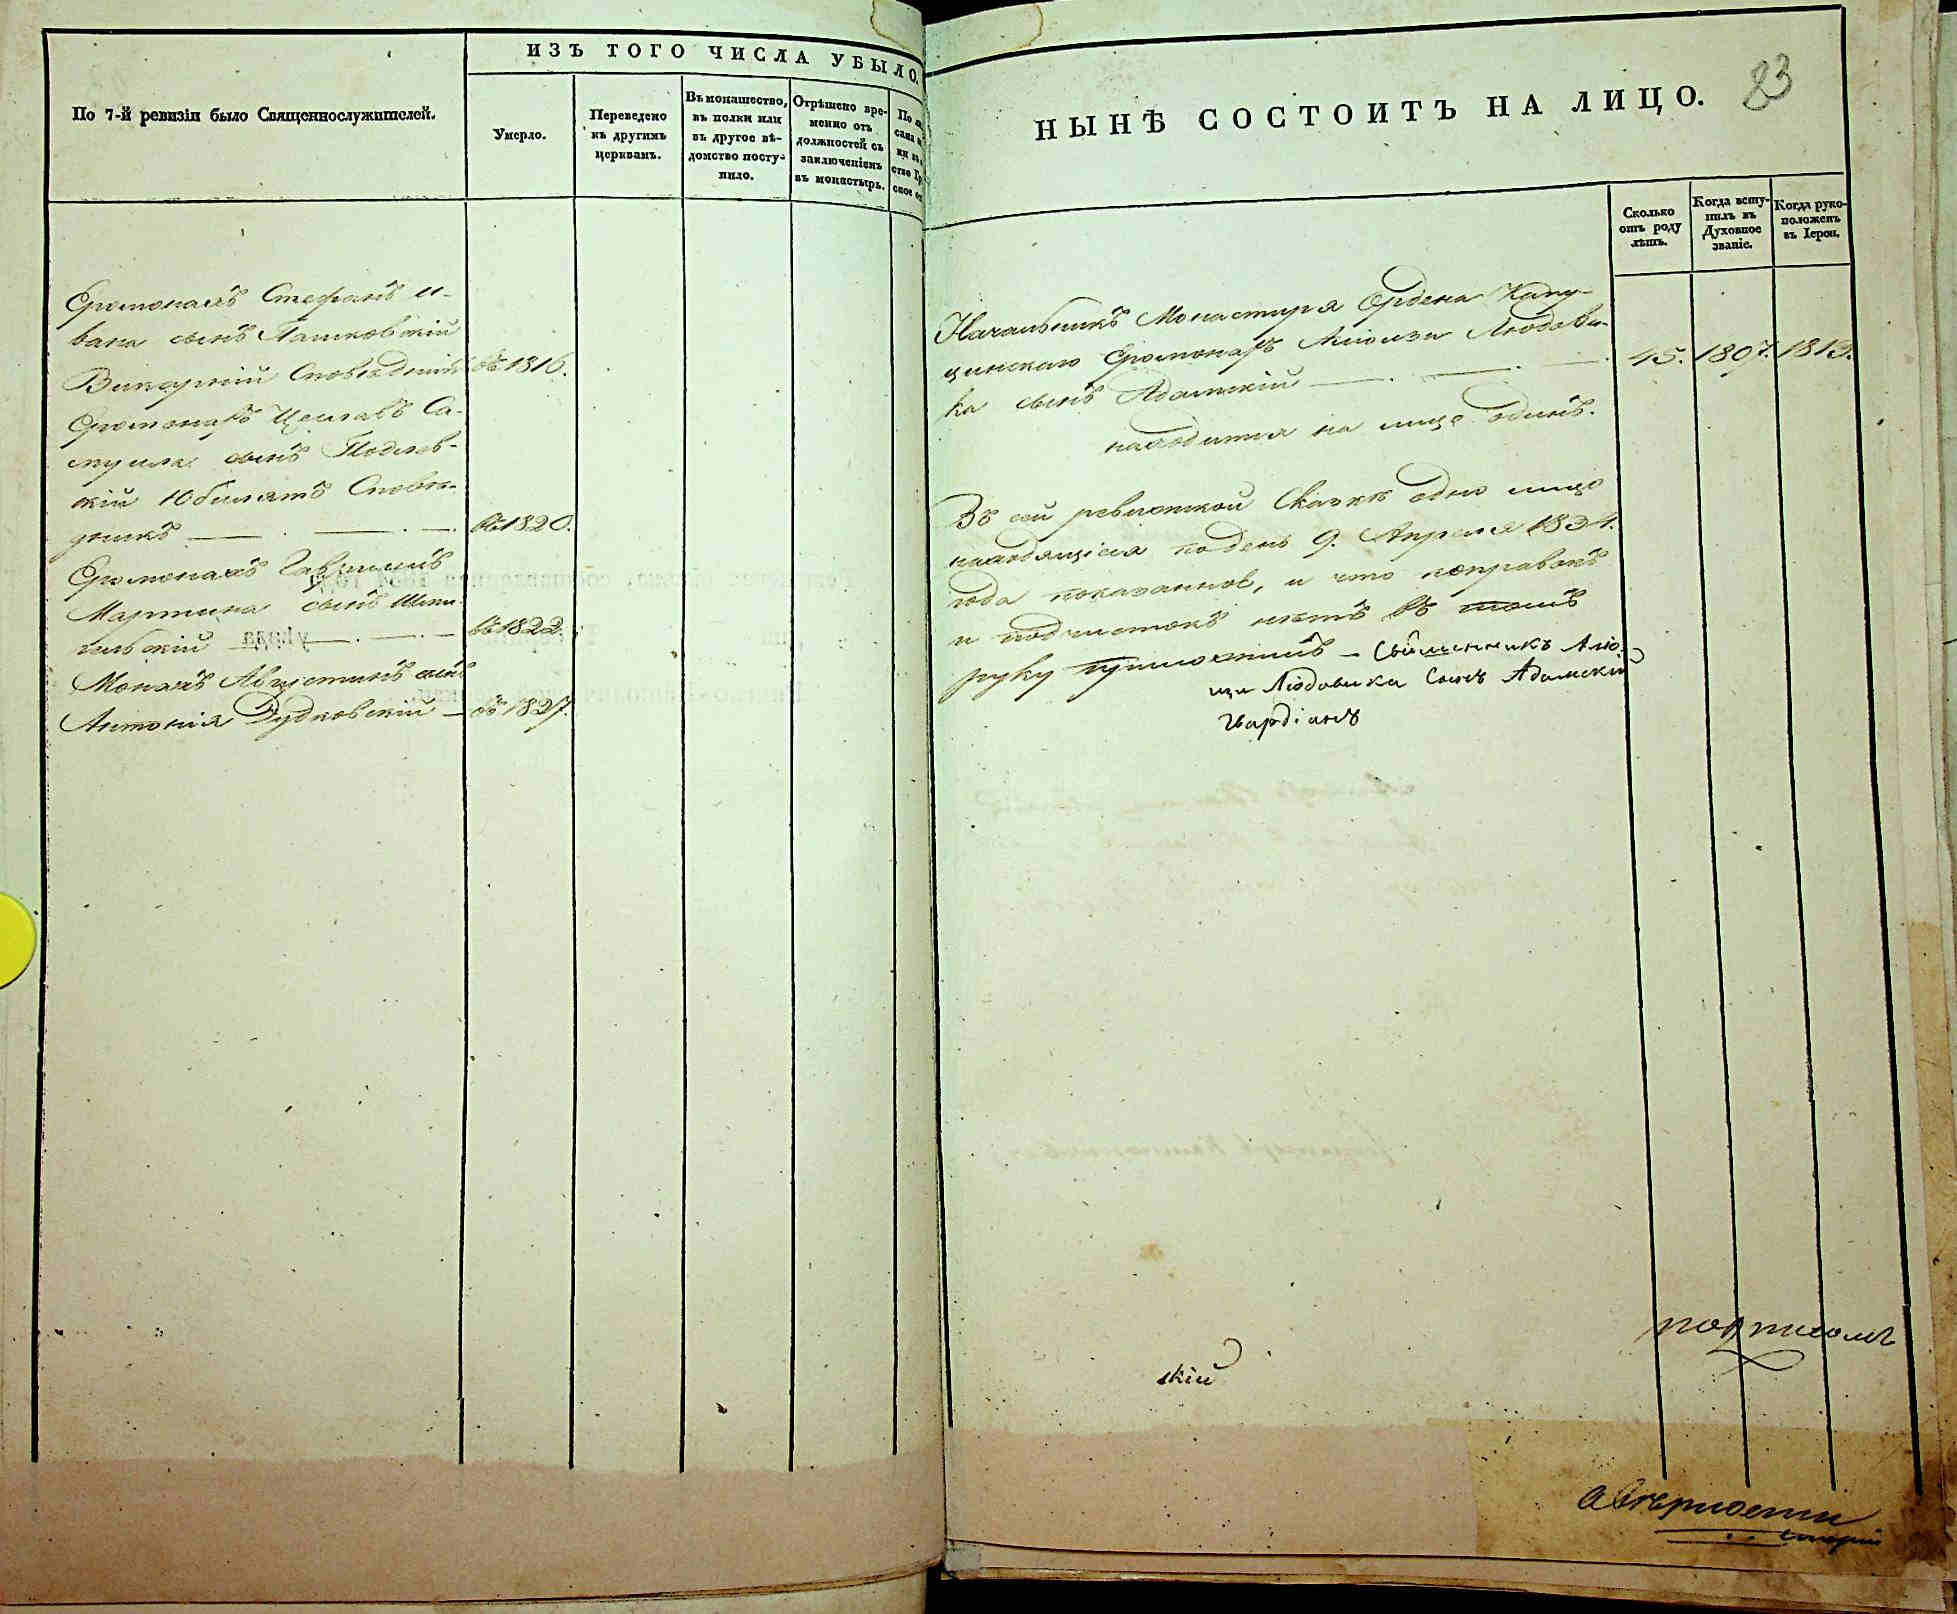 По 7-й ревизіи было Священнослужителей.
ИЗЪ ТОГО ЧИСЛА УБЫЛО.
Умерло.
Переведено
къ другимъ
церквамъ.
Въ монашество,
въ полки или
въ другое вѣ-
домство посту-
пило.
Отрѣшено вре-
менно отъ
должностей съ
заключеніемъ
въ монастырь.
По
Еромонахъ Стефанъ И-
вана сынъ Пашковскій
Викарній Сповѣдникъ въ 1816.
Еромонахъ Цеславъ Са-
муила сынъ Подлев-
скій Юбилятъ Сповѣ-
дникъ въ 1820.
Еромонахъ Гавріилъ
Мартина сынъ
въ 1822.
Монахъ Августинъ сынъ
Антонія Дудковскій въ 1827.
23
НЫНѢ СОСТОИТЪ НА ЛИЦО.
Сколько
отъ роду
лѣтъ.
Когда всту-
пилъ въ
Духовное
званіе.
Когда руко-
положенъ
въ Іереи.
Начальникъ Монастыря Ордена Капу-
цинскаго Еромонахъ Алоизи Людови-
ка сынъ Адамскій 45. 1807. 1813.
находится на лице одинъ.
Въ сей ревизской Сказкѣ одно лицо
находящіеся по день 9. Апреля 1834.
года показанное, и что поправокъ
и подчистокъ нѣтъ въ томъ
руку приложилъ – Священникъ Алои-
зи Людовика Сынъ Адамскій
Гвардіанъ
скій